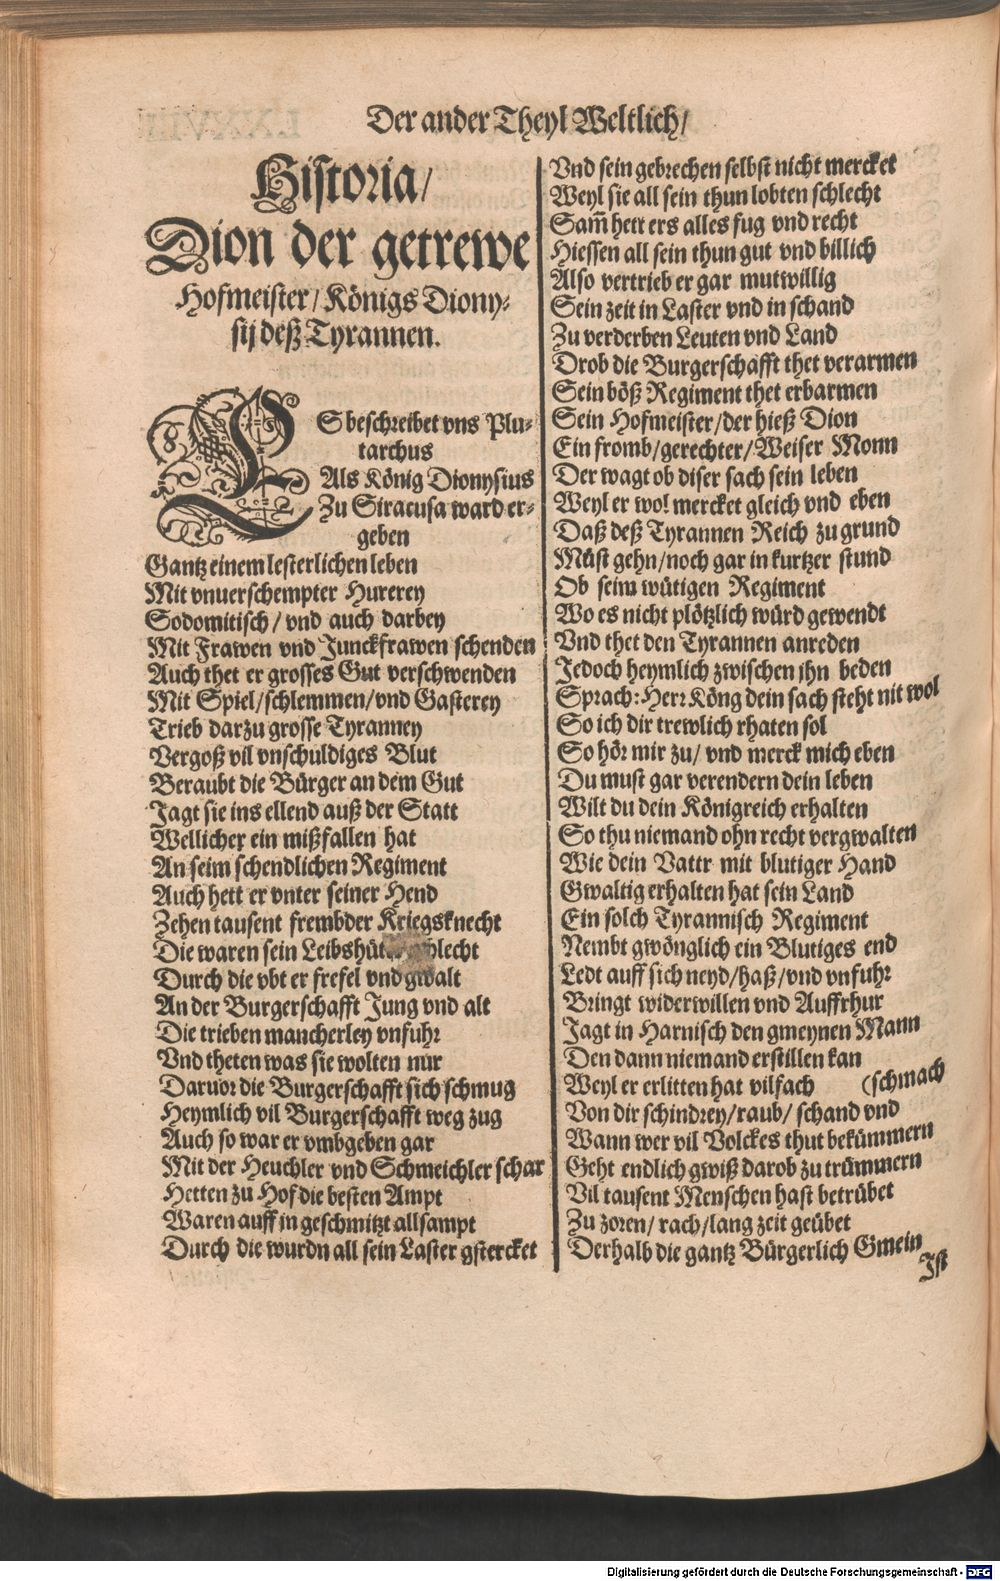 Der ander Theyl Weltlich/
Historia/
Dion der getrewe
Hofmeister/Königs Diony-
sij deß Tyrannen.
ES beschreibet vns Plu-
tarchus
Als König Dionysius
Zu Siracusa ward er-
geben
Gantz einem lesterlichen leben
Mit vnuerschempter Hurerey
Sodomitisch/ vnd auch darbey
Mit Frawen vnd Junckfrawen schenden
Auch thet er grosses Gut verschwenden
Mit Spiel/schlemmen/vnd Gasterey
Trieb darzu grosse Tyranney
Vergoß vil vnschuldiges Blut
Beraubt die Bürger an dem Gut
Jagt sie ins ellend auß der Statt
Wellicher ein mißfallen hat
An seim schendlichen Regiment
Auch hett er vnter seiner Hend
Zehen tausent frembder Kriegsknecht
Die waren sein
Durch die vbt er frefel vnd gwalt
An der Burgerschafft Jung vnd alt
Die trieben mancherley vnfuhr
Vnd theten was sie wolten nur
Daruor die Burgerschafft sich schmug
Heymlich vil Burgerschafft weg zug
Auch so war er vmbgeben gar
Mit der Heuchler vnd Schmeichler schar
Hetten zu Hof die besten Ampt
Waren auff in geschmitzt allsampt
Durch die wurdn all sein Laster gstercket
Vnd sein gebrechen selbst nicht mercket
Weyl sie all sein thun lobten schlecht
Sam̃ hett ers alles fug vnd recht
Hiessen all sein thun gut vnd billich
Also vertrieb er gar mutwillig
Sein zeit in Laster vnd in schand
Zu verderben Leuten vnd Land
Drob die Burgerschafft thet verarmen
Sein böß Regiment thet erbarmen
Sein Hofmeister/der hieß Dion
Ein fromb/gerechter/Weiser Monn
Der wagt ob diser sach sein leben
Weyl er wol mercket gleich vnd eben
Daß deß Tyrannen Reich zu grund
Müst gehn/noch gar in kurtzer stund
Ob seim wütigen Regiment
Wo es nicht plötzlich würd gewendt
Vnd thet den Tyrannen anreden
Jedoch heymlich zwischen ihn beden
Sprach: Herr Köng dein sach steht nit wol
So ich dir trewlich rhaten sol
So hör mir zu/ vnd merck mich eben
Du must gar verendern dein leben
Wilt du dein Königreich erhalten
So thu niemand ohn recht vergwalten
Wie dein Vattr mit blutiger Hand
Gwaltig erhalten hat sein Land
Ein solch Tyrannisch Regiment
Nembt gwönglich ein Blutiges end
Ledt auff sich neyd/haß/vnd vnfuhr
Bringt widerwillen vnd Auffrhur
Jagt in Harnisch den gmeynen Mann
Den dann niemand erstillen kan
Weyl er erlitten hat vilfach (schmach
Von dir schindrey/raub/ schand vnd
Wann wer vil Volckes thut bekümmern
Geht endlich gwiß darob zu trümmern
Vil tausent Menschen hast betrübet
Zu zoren/ rach/lang zeit geübet
Derhalb die gantz Bürgerlich Gmein
Ist
Digitalisierung gefördert durch die Deutsche Forschungsgemeinschaft - DFG